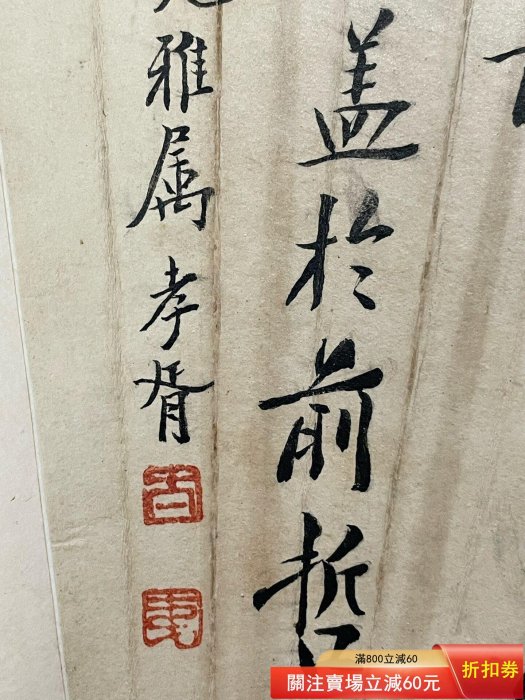 盖於前哲
雅属 孝胥
滿800立減60
關注賣場立減60元
折扣券